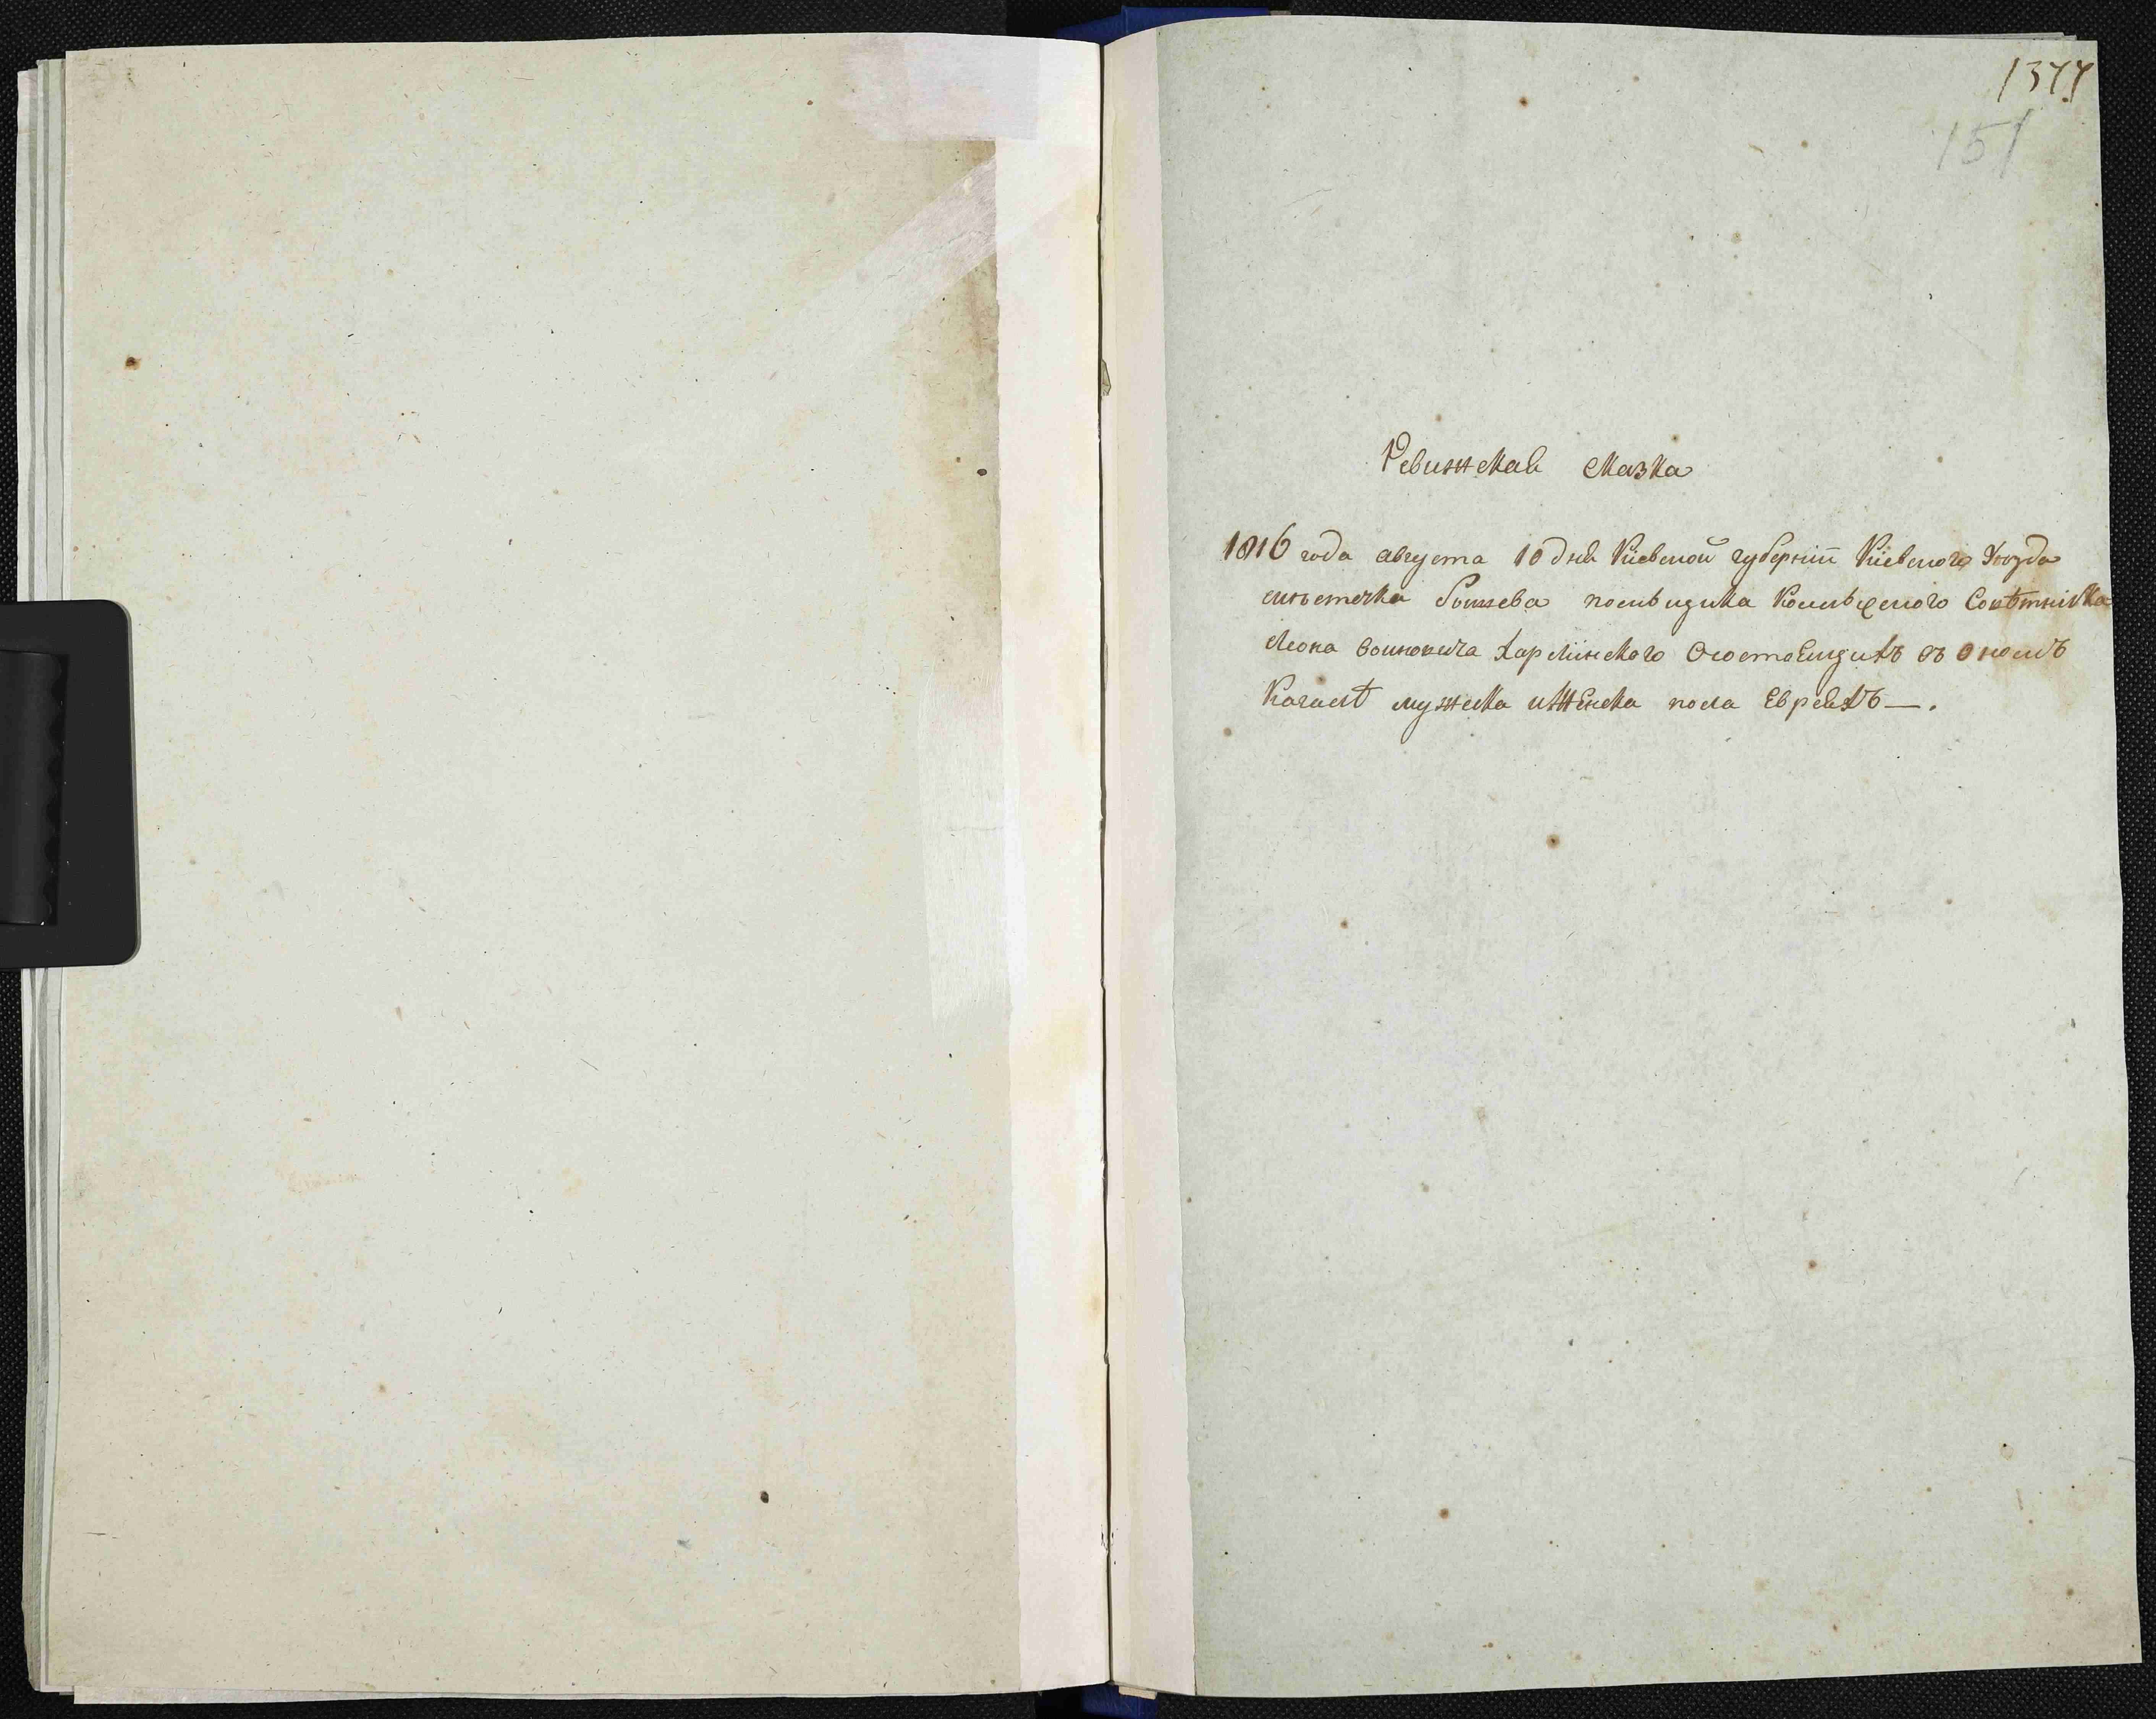 1377
151
Ревижская сказка
1816 года августа 10 дня Киевской губернїи Кіевского Уѣзда
мѣстечка помѣщика Коллежского Совѣтника
Леона Воиновича Харлїнского О состоящихъ въ ономъ
Кагалѣ мужеска и женска пола Евреяхъ —.